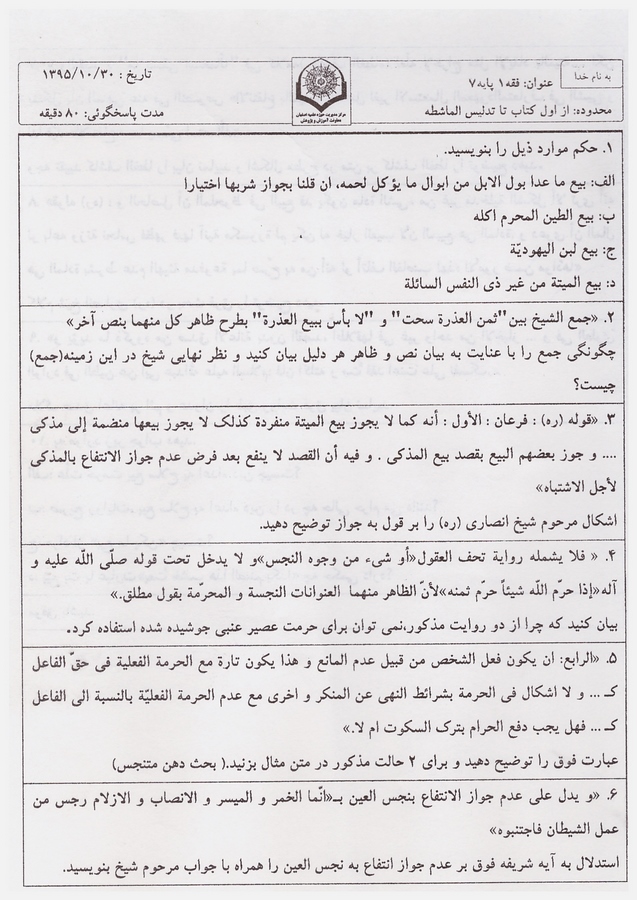 به نام خدا
عنوان: فقه۱ پایه۷
تاریخ : ۱۳۹۵/۱۰/۳۰
مرکز مدیریت حوزه علمیه اصفهان
معاونت آموزش و پژوهش
محدوده: از اول کتاب تا تدلیس الماشطه
مدت پاسخگوئی: ۸۰ دقیقه
۱. حکم موارد ذیل را بنویسید.
الف: بیع ما عدا بول الابل من ابوال ما یؤکل لحمه، ان قلنا بجواز شربها اختیارا
ب: بیع الطین المحرم اکله
ج: بیع لبن الیهودیّة
د: بیع المیتة من غیر ذی النفس السائلة
۲. «جمع الشیخ بین"ثمن العذرة سحت" و "لا بأس ببیع العذرة" بطرح ظاهر کل منهما بنص آخر»
چگونگی جمع را با عنایت به بیان نص و ظاهر هر دلیل بیان کنید و نظر نهایی شیخ در این زمینه(جمع)
چیست؟
۳. «قوله (ره) : فرعان : الأول : أنه کما لا یجوز بیع المیتة منفردة کذلک لا یجوز بیعها منضمة إلی مذکی
.... و جوز بعضهم البیع بقصد بیع المذکی . و فیه أن القصد لا ینفع بعد فرض عدم جواز الانتفاع بالمذکی
لأجل الاشتباه»
اشکال مرحوم شیخ انصاری (ره) را بر قول به جواز توضیح دهید.
۴. « فلا یشمله روایة تحف العقول«أو شیء من وجوه النجس»و لا یدخل تحت قوله صلّی اللّه علیه و
آله«إذا حرّم اللّه شیئاً حرّم ثمنه»لأنّ الظاهر منهما العنوانات النجسة و المحرّمة بقول مطلق.»
بیان کنید که چرا از دو روایت مذکور،نمی توان برای حرمت عصیر عنبی جوشیده شده استفاده کرد.
۵. «الرابع: ان یکون فعل الشخص من قبیل عدم المانع و هذا یکون تارة مع الحرمة الفعلیة فی حقّ الفاعل
کـ ... و لا اشکال فی الحرمة بشرائط النهی عن المنکر و اخری مع عدم الحرمة الفعلیّة بالنسبة الی الفاعل
کـ ... فهل یجب دفع الحرام بترک السکوت ام لا.»
عبارت فوق را توضیح دهید و برای ۲ حالت مذکور در متن مثال بزنید.( بحث دهن متنجس)
۶. «و یدل علی عدم جواز الانتفاع بنجس العین بـ«انّما الخمر و المیسر و الانصاب و الازلام رجس من
عمل الشیطان فاجتنبوه»
استدلال به آیه شریفه فوق بر عدم جواز انتفاع به نجس العین را همراه با جواب مرحوم شیخ بنویسید.